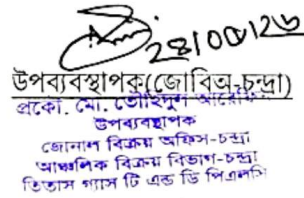 28/00/26
উপব্যবস্থাপক(জোবিঅ-চন্দ্রা)
প্রকৌ. মো. তৌহিদুল
উপব্যবস্থাপক
জোনাল বিক্রয় অফিস-চন্দ্রা
আঞ্চলিক বিক্রয় বিভাগ-চন্দ্রা
তিতাস গ্যাস টি এন্ড ডি পিএলসি